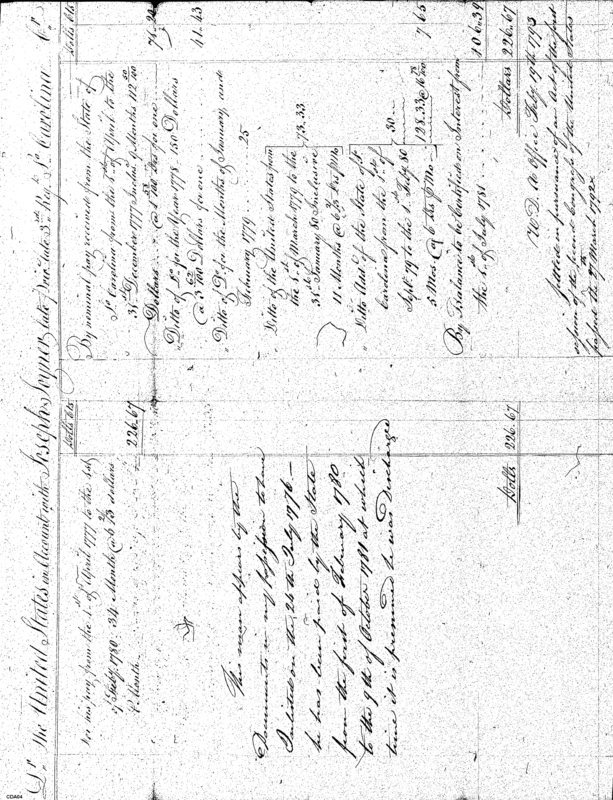 Dr. The United States in Account with Joseph Joyner, late Priv. late 3rd Regt. So. Carolina Cr.
Dolls Cts
For his pay from the 1st. of April 1777 to the 1st
of Feby. 1780. 34 Month @ 6 dollars
P Month.
226.67
This man appears by the
Documents in my possession to have
Inlisted on the 26th July 1776 —
he has been paid by the State
from the first of February 1780
to the 9th of October 1781 at which
time it is presumed he was discharged
Dolls 226.67
Dolls Cts
By nominal pay received from the State of
So Carolina from the 1st. of April to the
31st December 1777 Inclus. 9 Months 112 50/100
Dollars @ 1 for one
76.20
Ditto of Do. for the Year 1778. 150 Dollars
@ 3 62/100 Dollars for one
41.43
Ditto of Do for the Months of January, and
February 1779 25
Ditto of the United States from
the 1st. of March 1779 to the
31st January 80 Inclusive
11. Months @ 6 Drs P Mo
73.33
Ditto of the State of So
Carolina from the 1st of
Sept. 79 to the 1. Feby. 80
5 Mos @ 6 Drs P Mo
30..
128.33 @
7.65
By Balance to be Certified on Interest from
the 1st. of July 1781
106.39
Dollars 226.67
W. D. A Office Feby. 19th 1793
Settled in pursuance of an Act of the first
session of the second Congress of the United States
passed the 27th March 1792
CDA04